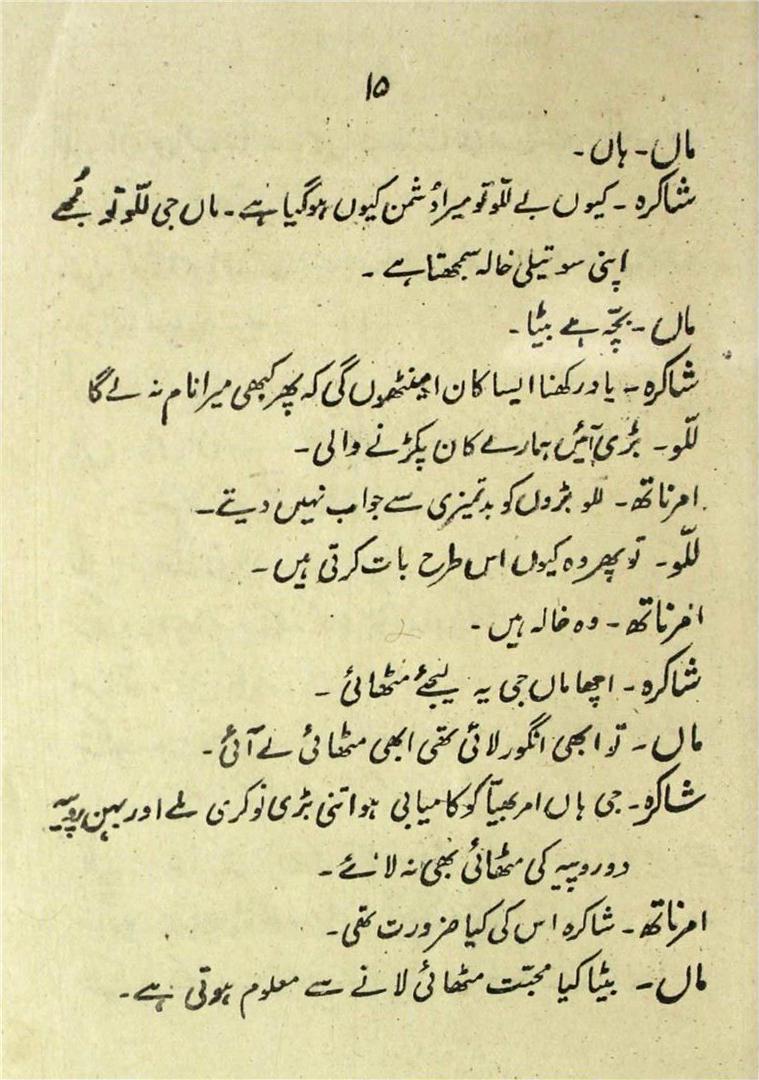 ۱۵
ماں۔ ہاں۔
شاکرہ۔ کیوں بے للّو تو میرا دشمن کیوں ہوگیا ہے۔ ماں جی للّو تو مُجھے
اپنی سوتیلی خالہ سمجھتا ہے۔
ماں۔ بچّہ ہے بیٹا۔
شاکرہ۔ یاد رکھنا ایسا کان اینٹھوں گی کہ پھر کبھی میرا نام نہ لے گا
للّو۔ بڑی آئیں ہمارے کان پکڑنے والی۔
امرناتھ۔ للو بڑوں کو بدتمیزی سے جواب نہیں دیتے۔
للّو۔ تو پھر وہ کیوں اس طرح بات کرتی ہیں۔
امرناتھ۔ وہ خالہ ہیں۔
شاکرہ۔ اچھا ماں جی یہ لیجئے مٹھائی۔
ماں۔ تو ابھی انگور لائی تھی ابھی مٹھائی لے آئی۔
شاکرہ۔ جی ہاں امر بھیّا کو کامیابی ہو اتنی بڑی نوکری ملے اور بہن روپیہ
دو روپیہ کی مٹھائی بھی نہ لائے۔
امرناتھ۔ شاکرہ اس کی کیا ضرورت تھی۔
ماں۔ بیٹا کیا محبّت مٹھائی لانے سے معلوم ہوتی ہے۔